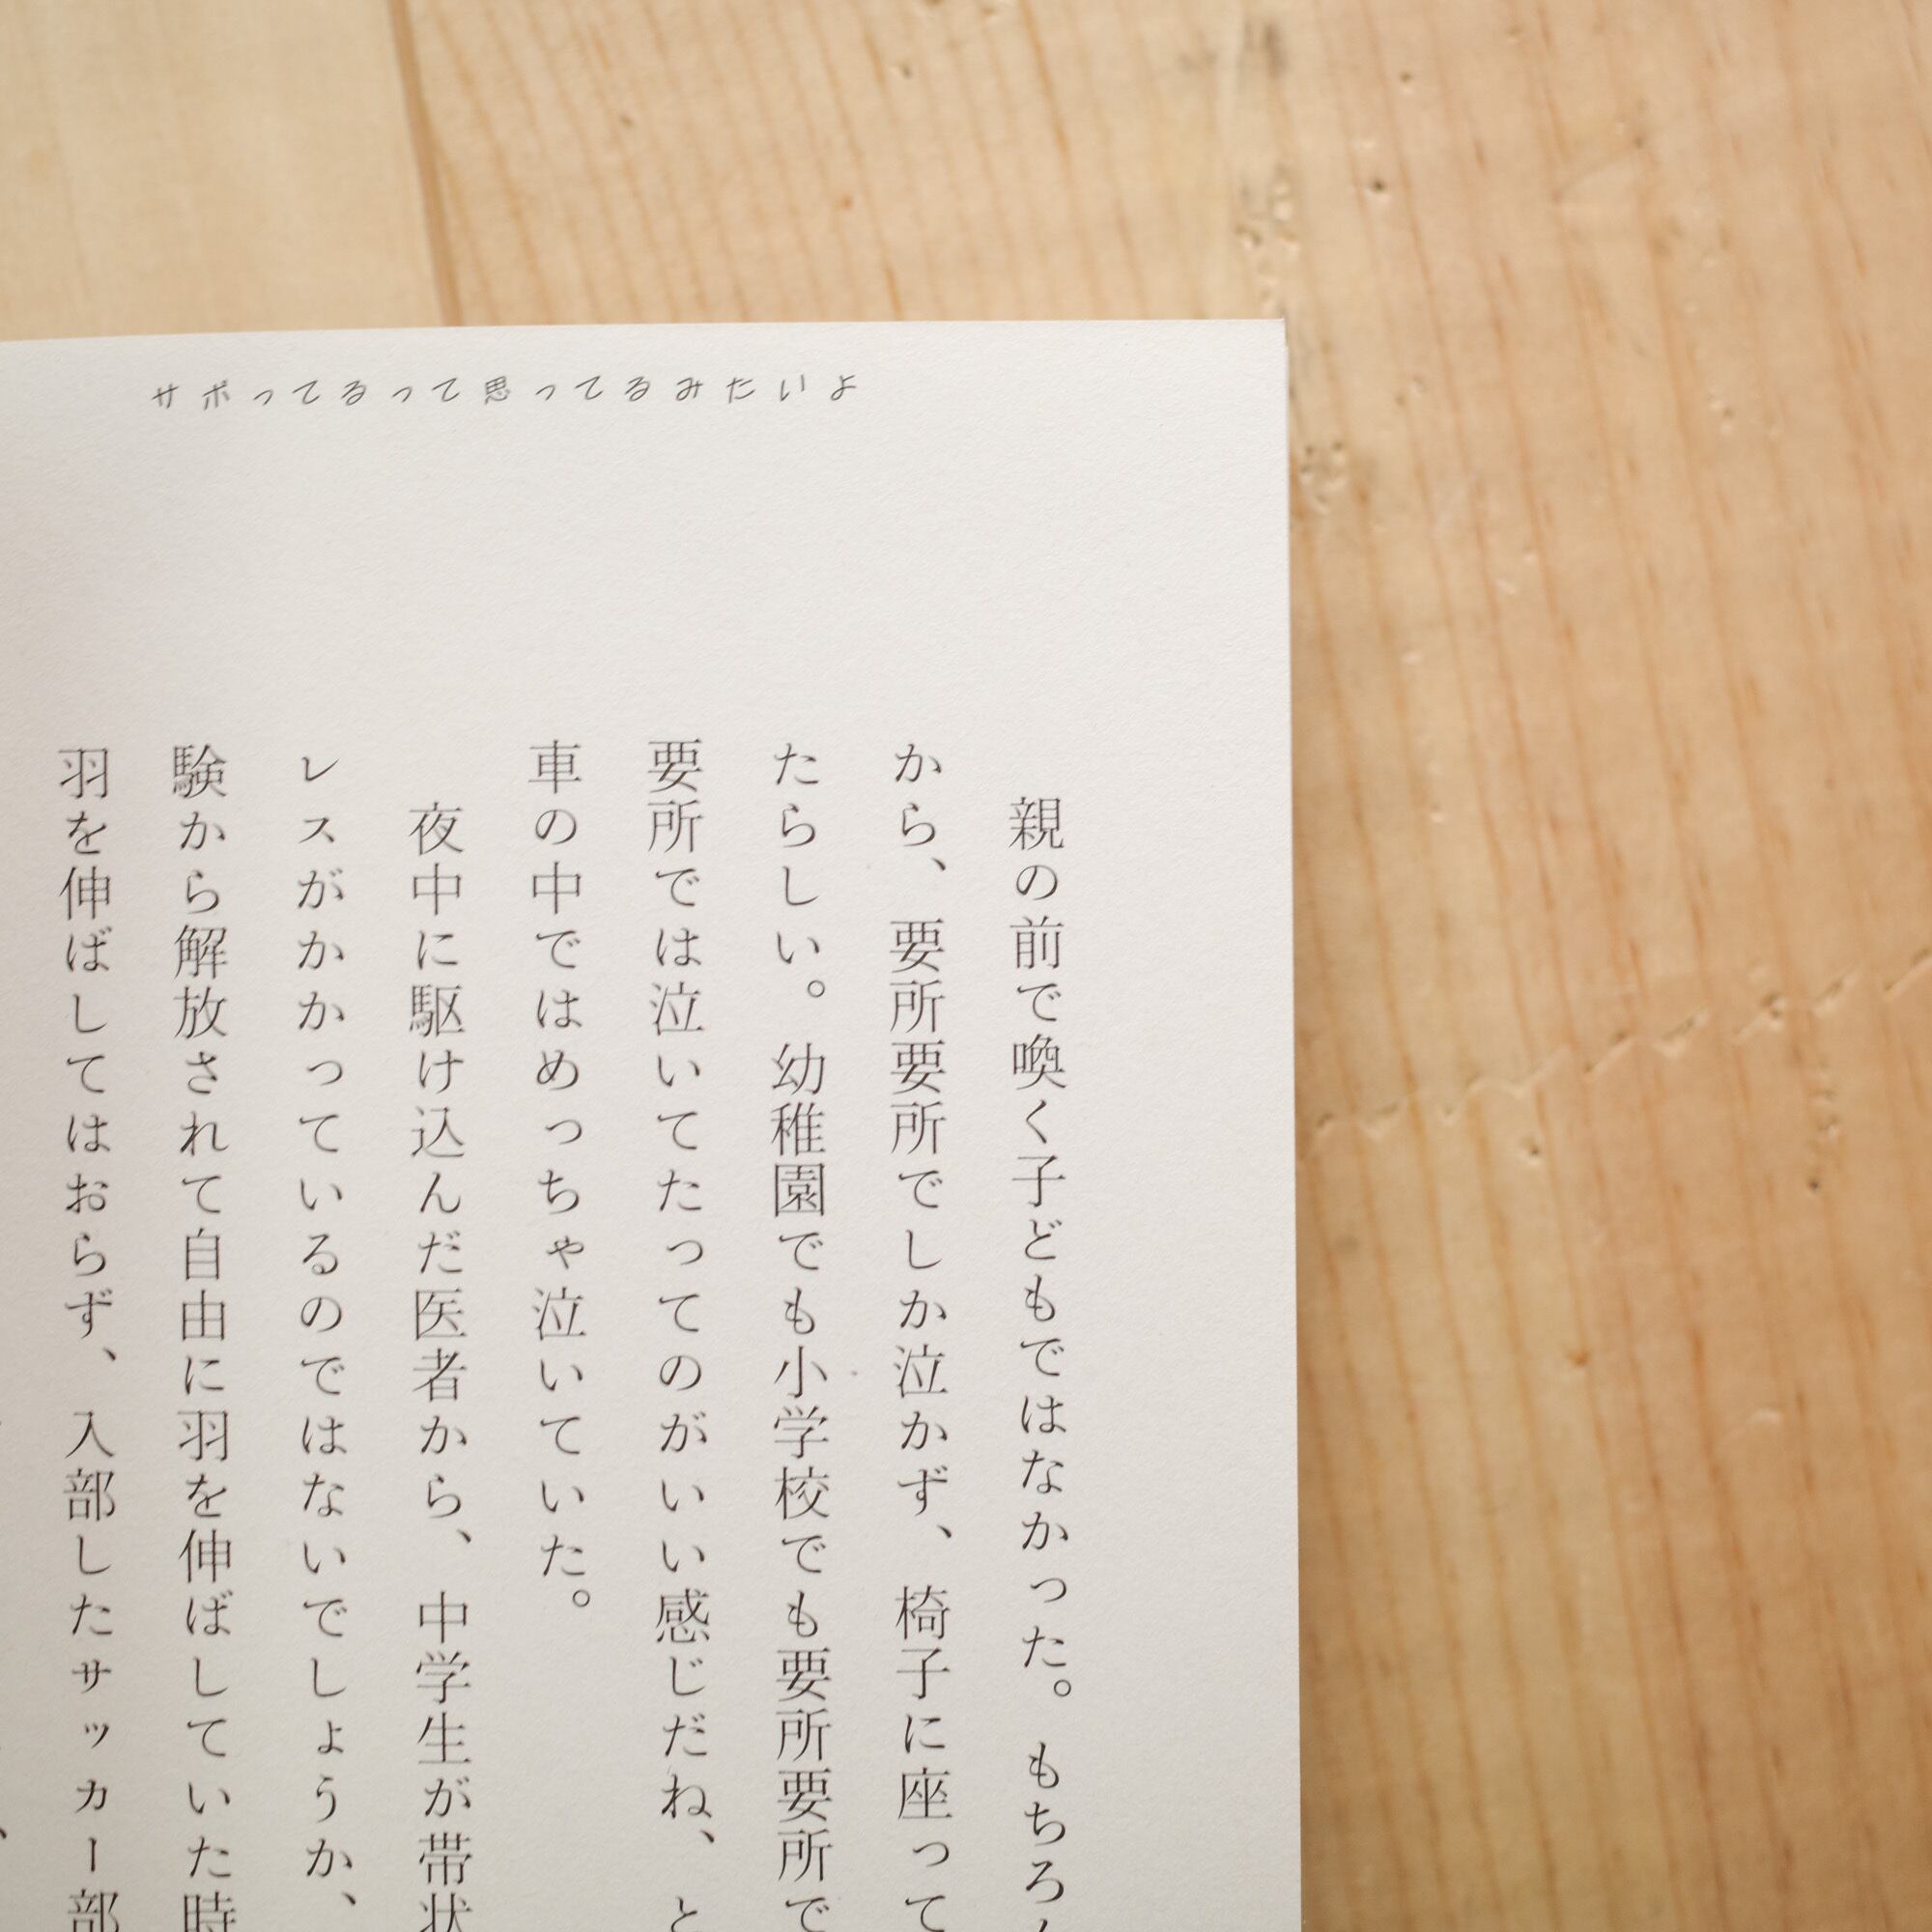 サボってるって思ってるみたいよ
親の前で喚く子どもではなかった。もちろ
から、要所要所でしか泣かず、椅子に座って
たらしい。幼稚園でも小学校でも要所要所で
要所では泣いてたってのがいい感じだね、と
車の中ではめっちゃ泣いていた。
夜中に駆け込んだ医者から、中学生が帯状
レスがかかっているのではないでしょうか、
験から解放されて自由に羽を伸ばしていた時
羽を伸ばしてはおらず、入部したサッカー部